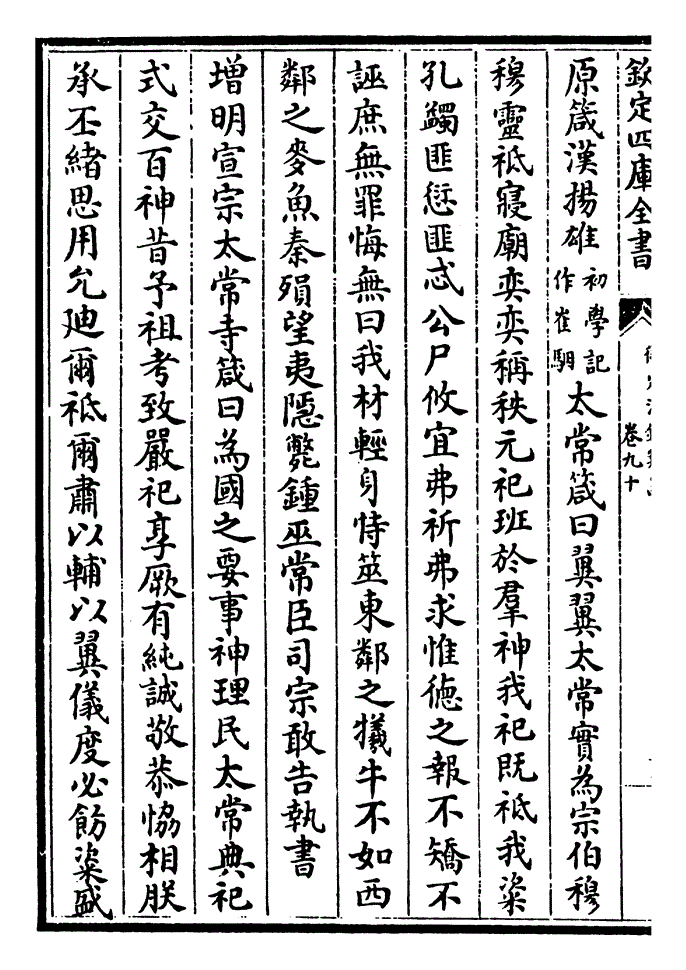 欽定四庫全書
卷九十
原箴漢揚雄初學記作崔駰太常箴曰翼翼太常實為宗伯穆
穆靈祗寢廟奕奕稱秩元祀班於羣神我祀既祗我粢
孔蠲匪愆匪忒公尸攸宜弗祈弗求惟德之報不矯不
誣庶無罪悔無曰我材輕身恃筮東鄰之犧牛不如西
鄰之麥魚秦殞望夷隱斃鍾巫常臣司宗敢告執書
增明宣宗太常寺箴曰為國之要事神理民太常典祀
式交百神昔予祖考致嚴祀享厥有純誠敬恭恊相朕
承丕緒思用允廸爾祗爾肅以輔以翼儀度必飭粢盛